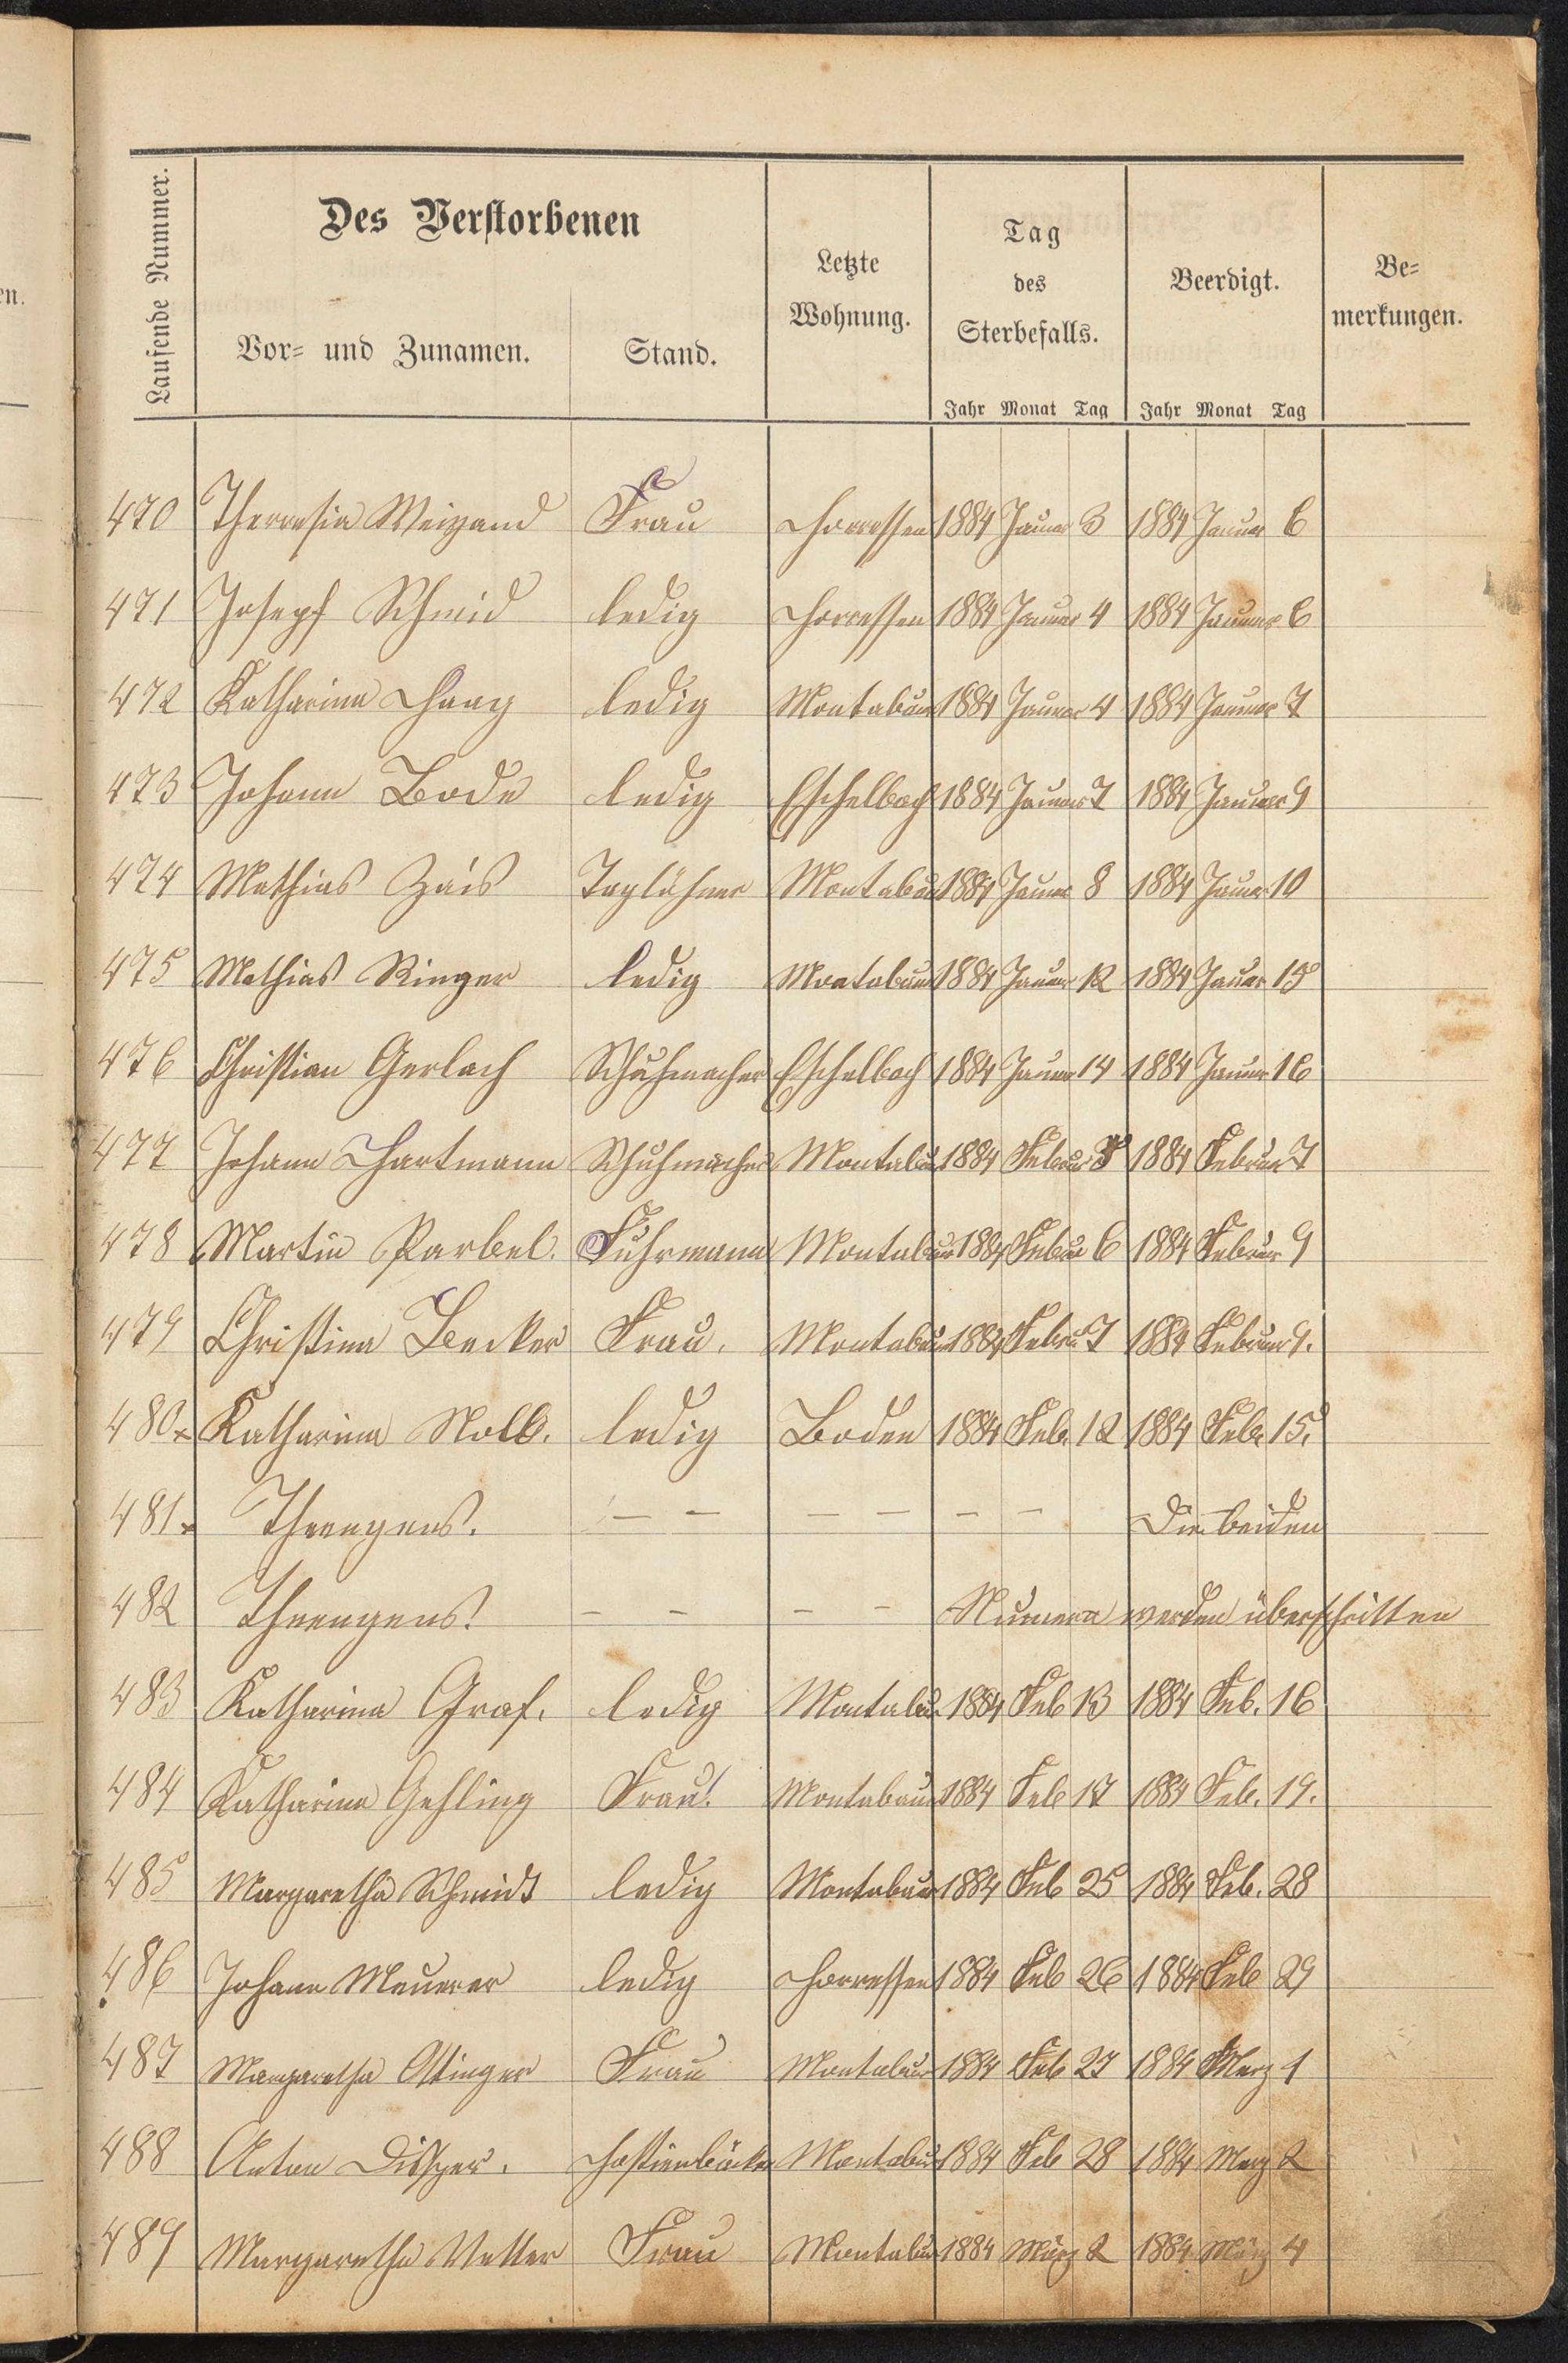 en.
Laufende Nummer.
Des Verstorbenen
Vor- und Zunamen.
Stand.
Letzte
Wohnung.
Tag
des
Sterbefalls.
Jahr Monat Tag
Beerdigt.
Jahr Monat Tag
Be-
merkungen.
470 Theresia Weigand Frau Horressen 1884 Januar 3 1884 Januar 6
471 Joseph Schmid ledig Horressen 1884 Januar 4 1884 Januar 6
472 Katharina Haag ledig Montabaur 1884 Januar 4 1884 Januar 7
473 Johann Bode ledig Eschelbach 1884 Januar 7 1884 Januar 9
474 Mathias Zäis Taglöhner Montabaur 1884 Januar 8 1884 Januar 10
475 Mathias Ringer ledig Montabaur 1884 Januar 12 1884 Januar 15
476 Christian Gerlach Schuhmacher Eschelbach 1884 Januar 14 1884 Januar 16
477 Johann Hartmann Schuhmacher Montabaur 1884 Februar 1884 Februar 7
478 Martin Parbel. Fuhrmann Montabaur 1884 Februar 6 1884 Februar 9
479 Christina Becker Frau. Montabaur 1884 Febru 7 1884 Februar 9.
480 Katharina Noll. ledig Boden 1884 Feb. 12 1884 Feb. 15.
481 - - - - - - Die beiden
482 - - - - Numera werden überschritten
483 Katharina Graf. ledig Montabaur 1884 Feb 13 1884 Feb. 16
484 Katharina Gehling Frau. Montabaur 1884 Feb 17 1884 Feb. 19.
485 Margaretha Schmidt ledig Montabaur 1884 Feb 25 1884 Feb. 28
486 Johann Meurer ledig Horressen 1884 Feb 26 1884 Feb 29
487 Margaretha Ottinger Frau Montabaur 1884 Feb 27 1884 Merz 1
488 Anton Disper. Hostienbäcker Montabaur 1884 Feb 28 1884 Merz 2
489 Margaretha Vetter Frau Montabaur 1884 März 2 1884 März 4